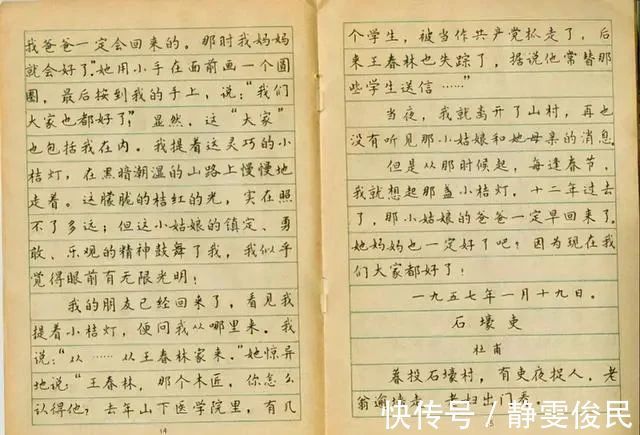 我爸爸一定会回来的。那时我妈妈
就会好了”她用小手在面前画一个圆
圈，最后按到我的手上，说：“我们
大家也都好了！”显然，这“大家”
也包括我在内。我提着这灵巧的小
桔灯，在黑暗潮湿的山路上慢慢地
走着。这朦胧的桔红的光，实在照
不了多远；但这小姑娘的镇定、勇
敢、乐观的精神鼓舞了我，我似乎
觉得眼前有无限光明！
我的朋友已经回来了，看见我
提着小桔灯，便问我从哪里来。我
说：“从……从王春林家来。”她惊异
地说：“王春林，那个木匠，你怎么
认得他？去年山下医学院里，有几
14
个学生，被当作共产党抓走了，后
来王春林也失踪了，据说他常替那
些学生送信……”
当夜，我就离开了山村，再也
没有听见那小姑娘和她母亲的消息。
但是从那时候起，每逢春节，
我就想起那盏小桔灯。十二年过去
了，那小姑娘的爸爸一定早回来了。
她妈妈也一定好了吧？因为现在我
们大家都好了！
一九五七年一月十九日。
石壕吏
杜甫
暮投石壕村，有吏夜捉人，老
翁逾墙走，老妇出门看。
15
快传号／静雯俊民